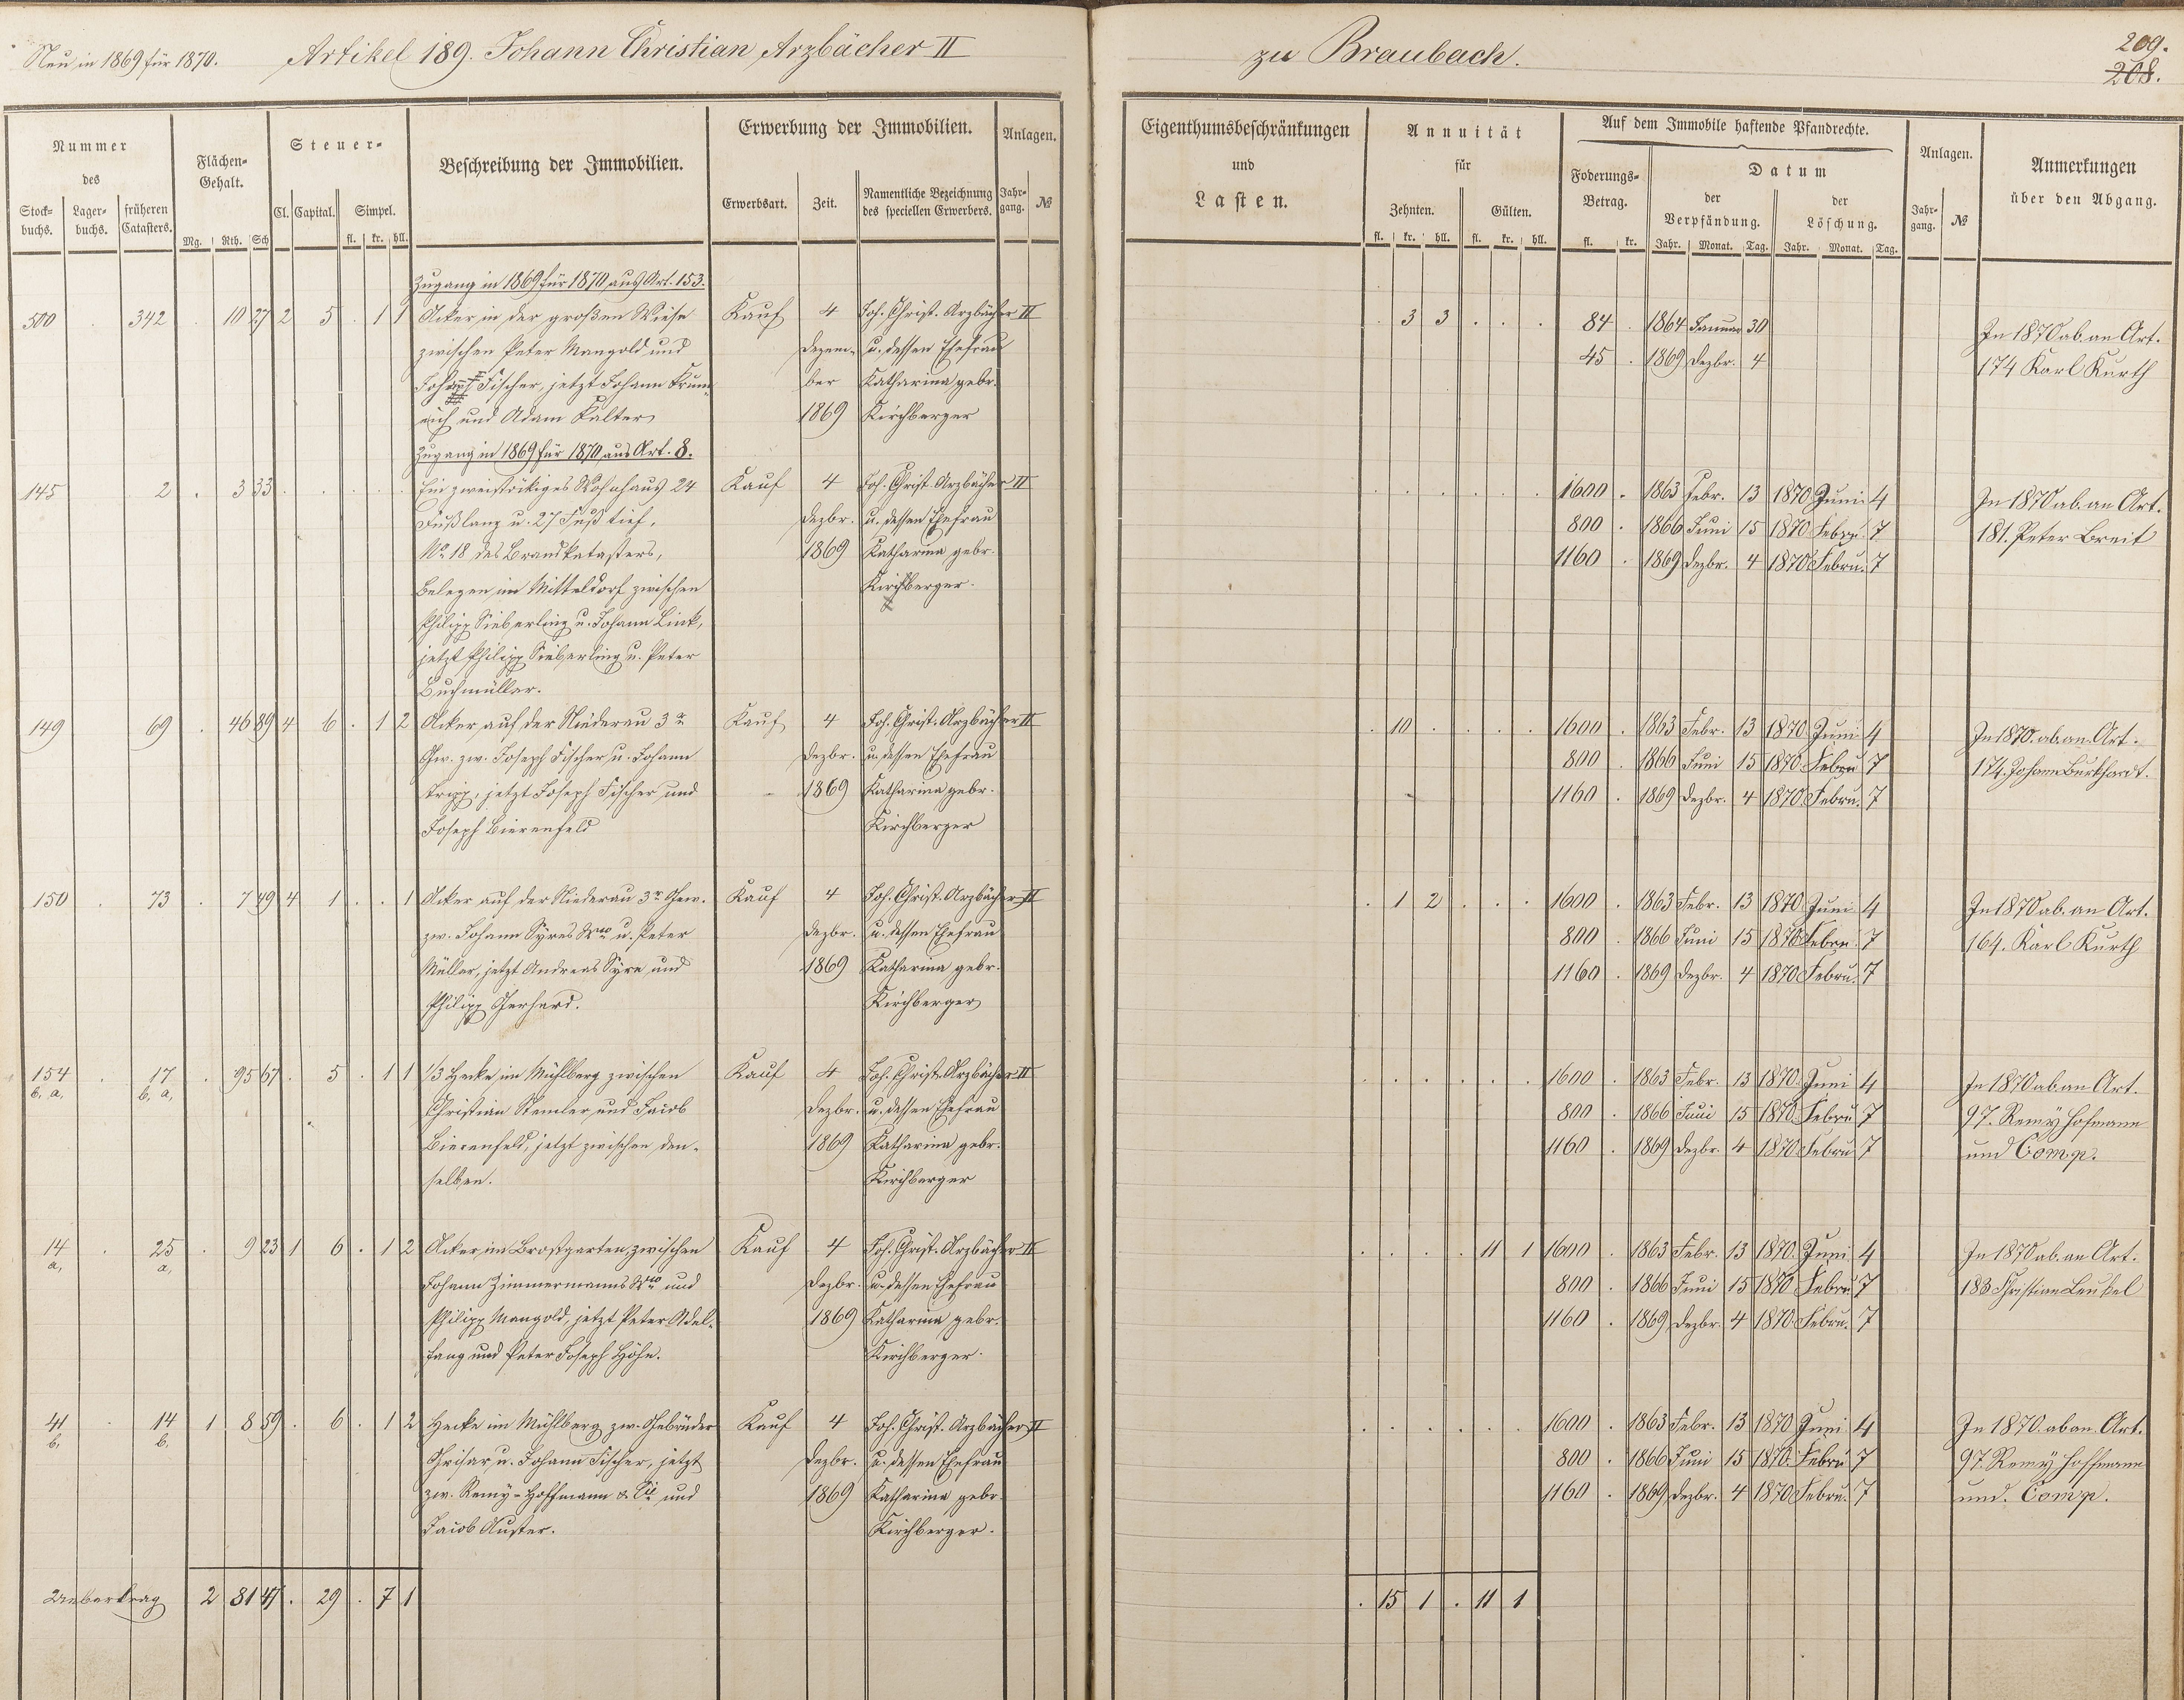 Neu in 1869 für 1870. Artikel 189. Johann Christian Arzbächer II zu Braubach. 209.
208.
Nummer des
Stockbuchs. Lagerbuchs. früheren Catasters.
Flächen-Gehalt.
Mg. Rth. Sch
Steuer-
Cl. Capital. Simpel.
fl. kr. hll.
Beschreibung der Immobilien.
Erwerbung der Immobilien.
Erwerbsart. Zeit. Namentliche Bezeichnung des speciellen Erwerbers.
Anlagen.
Jahrgang. №
Eigenthumsbeschränkungen
und
Lasten.
Annuität
für
Zehnten. Gülten.
fl. kr. hll. fl. kr. hll.
Auf dem Immobile haftende Pfandrechte.
Foderungs-Betrag.
fl. kr.
Datum
der Verpfändung. der Löschung.
Jahr. Monat. Tag. Jahr. Monat. Tag.
Anlagen.
Jahrgang. №
Anmerkungen
über den Abgang.
Zugang in 1869 für 1870 aus Art. 153.
500 . 342 . 10 27 2 5 . 1 1 Acker in der großen Wiese Kauf 4 Joh. Christ. Arzbächer II . 3 3 . . . 84 . 1864 Januar 30 In 1870 ab. an Art.
zwischen Peter Mangold und Dezem- u. dessen Ehefrau 45 . 1869 Dezbr. 4 174 Karl Kurth
Fischer, jetzt Johann ber Katharina gebr.
und Adam Kalter 1869 Kirchberger
Zugang in 1869 für 1870 aus Art. 8.
145 2 . 3 33 . . . . . Ein zweistökiges Wohnhaus 24 Kauf 4 Joh. Christ. Arzbächer II . . . . . . 1600 . 1863 Febr. 13 1870 Juni 4 In 1870 ab. an Art.
Fuß lang u. 27 Fuß tief, Dezbr. u. dessen Ehefrau 800 . 1866 Juni 15 1870 Febru. 7 181. Peter Breit
No 18 des Brandkatasters, 1869 Katharina gebr. 1160 . 1869 Dezbr. 4 1870 Febru. 7
belegen im Mitteldorf zwischen Kirchberger.
Philipp Sieberling u. Johann Link,
jetzt Philipp Sieberling u. Peter
Buchmüller.
149 69 . 46 89 4 6 . 1 2 Acker auf der Niederau 3r Kauf 4 Joh. Christ. Arzbächer II . 10 . . . . 1600 . 1863 Febr. 13 1870 Juni 4 In 1870. ab. an Art.
Gew. zw. Joseph Fischer u. Johann Dezbr. u. dessen Ehefrau 800 . 1866 Juni 15 1870 Febru 7 174. Johann Burkhardt.
Kripp, jetzt Joseph Fischer und 1869 Katharina gebr. 1160 . 1869 Dezbr. 4 1870 Febru. 7
Joseph Bierenfeld Kirchberger
150 . 73 . 7 49 4 1 . . 1 Acker auf der Niederau 3r Gew. Kauf 4 Joh. Christ. Arzbächer II . 1 2 . . . 1600 . 1863 Febr. 13 1870 Juni 4 In 1870 ab. an Art.
zw. Johann Syres Wwe u. Peter Dezbr. u. dessen Ehefrau 800 . 1866 Juni 15 1870 Febru. 7 164. Karl Kurth
Müller, jetzt Andreas Syre und 1869 Katharina gebr. 1160 . 1869 Dezbr. 4 1870 Febru. 7
Philipp Gerhard. Kirchberger
154 . 17 . 95 67 . 5 . 1 1 1/3 Hecke im Mühlberg zwischen Kauf 4 Joh. Christ. Arzbächer II . . . . . . 1600 . 1863 Febr. 13 1870 Juni 4 In 1870 ab. an Art.
b. a, b. a, Christian Stemler und Jacob Dezbr. u. dessen Ehefrau 800 . 1866 Juni 15 1870 Febru 7 97. Remy Hofmann
Bierenfeld, jetzt zwischen den- 1869 Katharina gebr. 1160 . 1869 Dezbr. 4 1870 Febru 7 und Comp.
selben. Kirchberger
14 . 25 . 9 23 1 6 . 1 2 Acker im Brostgarten, zwischen Kauf 4 Joh. Christ. Arzbächer II . . . . 11 1 1600 . 1863 Febr. 13 1870. Juni 4 In 1870 ab. an Art.
a, a, Johann Zimmermanns Wwe und Dezbr. u. dessen Ehefrau 800 . 1866 Juni 15 1870 Febru 7 183 Christian Leukel
Philipp Mangold, jetzt Peter Adel- 1869 Katharina gebr. 1160 . 1869 Dezbr. 4 1870 Febru. 7
fang und Peter Joseph Höhn. Kirchberger.
41 . 14 1 8 59 . 6 . 1 2 Hecke im Mühlberg zw. Gebrüder Kauf 4 Joh. Christ. Arzbächer II . . . . . 1600 . 1863 Febr. 13 1870 Juni 4 In 1870. ab an. Art.
b, b, Grisar u. Johann Fischer, jetzt Dezbr. u. dessen Ehefrau 800 . 1866 Juni 15 1870. Febru 7 97. Remy Hoffmann
zw. Remy-Hoffmann & Cie und 1869 Katharina gebr. 1160 . 1869 Dezbr. 4 1870 Febru. 7 und. Comp.
Jacob Auster. Kirchberger.
Uebertrag 2 81 47 . 29 . 7 1 . 15 1 . 11 1